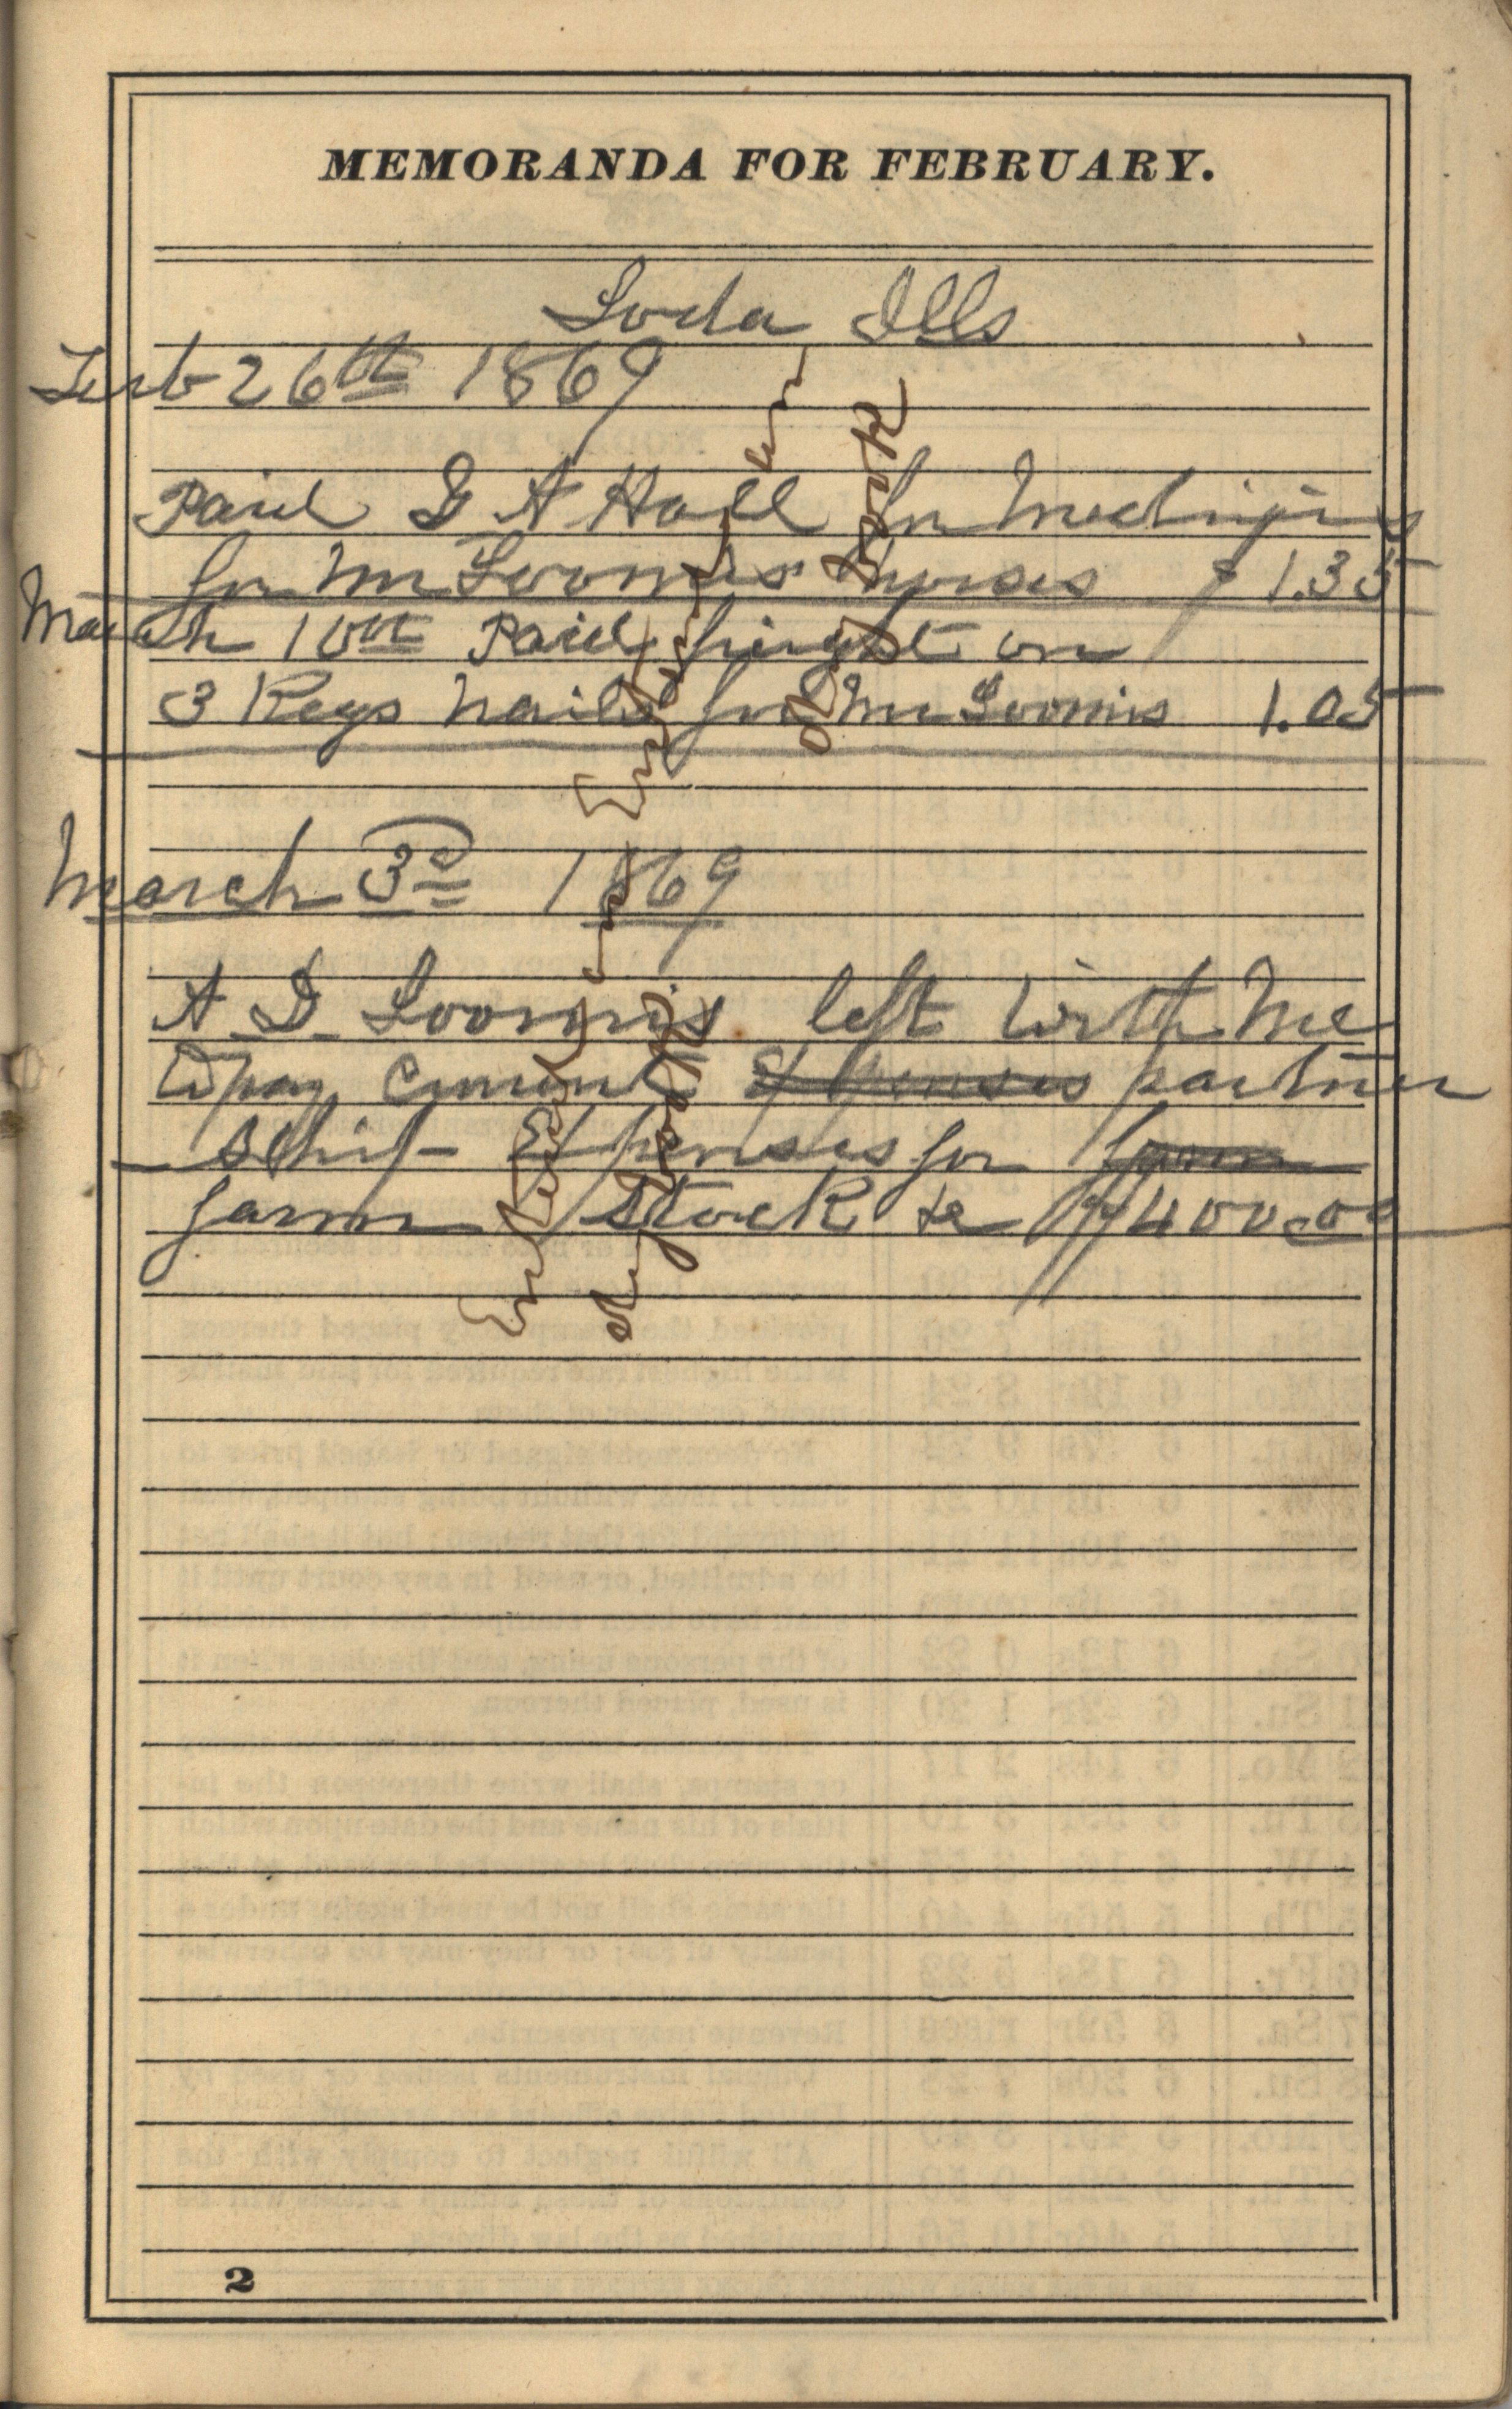 MEMORANDA FOR FEBRUARY.
Loda Ills
Feb 26th 1869
Paid G A Hall for Medicines
for Mr Loomis horses $ 1.35
March 10th Paid freight on
3 Kegs Nails for Mr Loomis 1.05
Entered on
Book
March 3d 1869
A D Loomis left with Me
to pay Current Expenses partner
ship Expenses for farm
farm Stock &c $400.00
Entered on
2